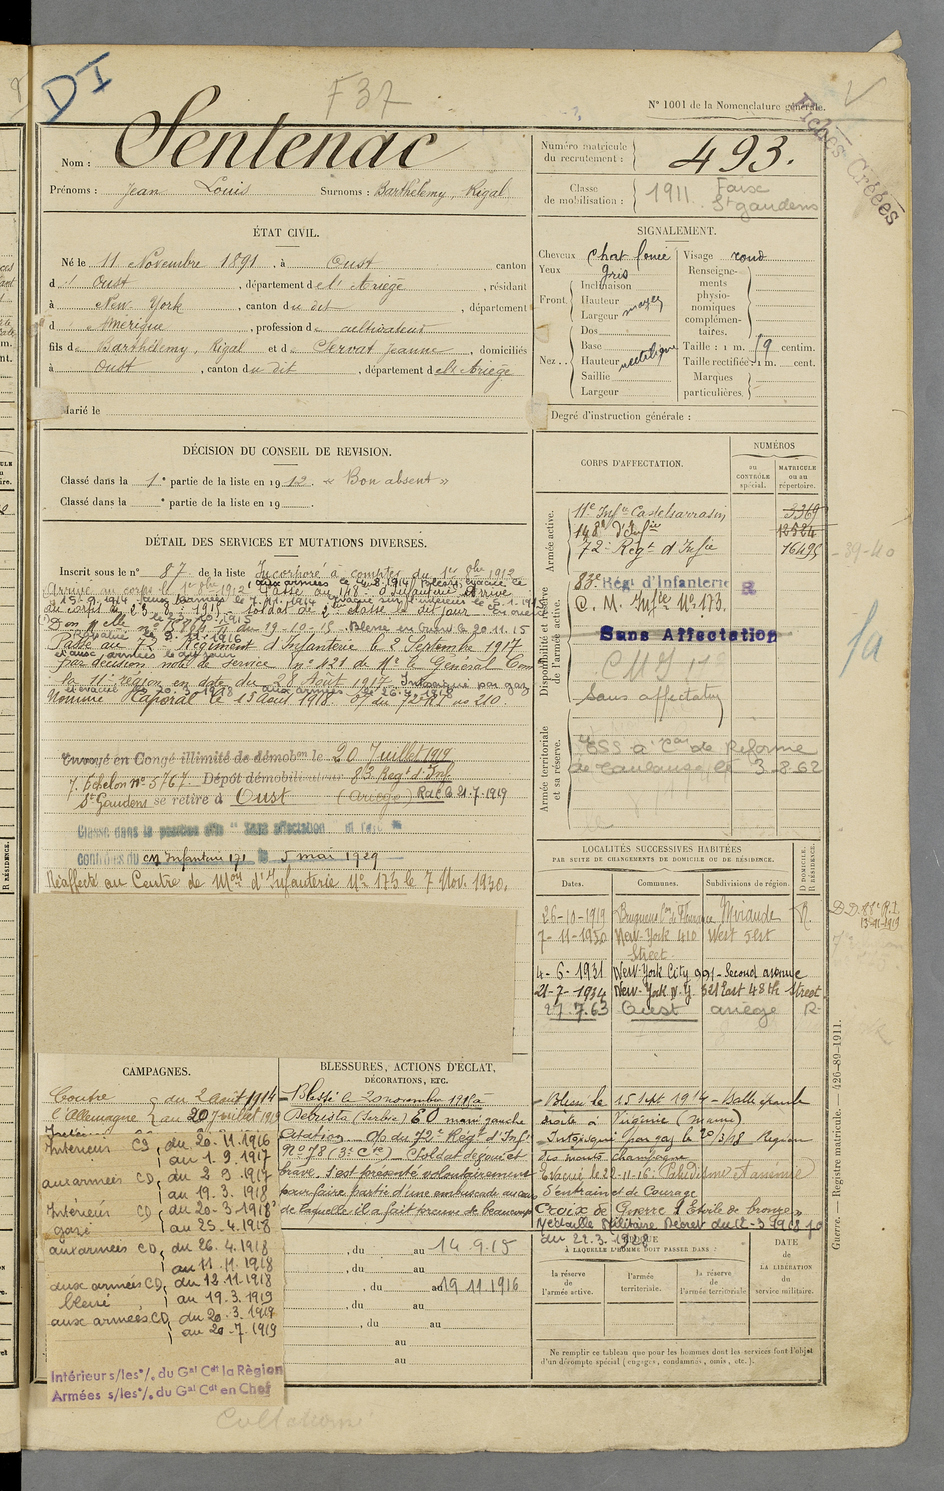 DI
F 37
N° 1001 de la Nomenclature générale.
Fiches Créées
Nom : Sentenac
Prénoms : Jean Louis Surnoms : Barthélemy, Rigal
Numéro matricule du recrutement : 493.
Classe de mobilisation : 1911
St gaudens
ÉTAT CIVIL.
Né le 11 Novembre 1891, à Oust canton
d' Oust, département de l'Ariège, résidant
à New-York, canton du dit, département
d' Amérique, profession de cultivateur
fils de Barthélemy, Rigal et de Servat Jeanne, domiciliés
à Oust, canton du dit, département de l'Ariège
Marié le
SIGNALEMENT.
Cheveux chat foncé
Yeux gris
Front. Inclinaison
Hauteur moyen
Largeur
Nez. Dos
Base
Hauteur rectiligne
Saillie
Largeur
Visage rond
Renseignements physionomiques complémentaires.
Taille : 1 m. 59 centim.
Taille rectifiée : 1 m. cent.
Marques particulières.
Degré d'instruction générale :
DÉCISION DU CONSEIL DE REVISION.
Classé dans la 1e partie de la liste en 1912. « Bon absent »
Classé dans la e partie de la liste en 19
CORPS D'AFFECTATION.
NUMÉROS
au CONTRÔLE spécial.
MATRICULE ou au répertoire.
Armée active.
11e Infie Castelsarrasin 3369
148e d'Infie 12524
72e Regt d'Infie 16495
Disponibilité et réserve de l'armée active.
83e Régt d'Infanterie
C. M. Infie N° 173.
Sans Affectation
sans affectation
Armée territoriale et sa réserve.
de Reforme
de Toulouse, le 3-8-62
39-40
DÉTAIL DES SERVICES ET MUTATIONS DIVERSES.
Inscrit sous le n° 87 de la liste Incorporé à compter du 1er 8bre 1912
au corps le 23-8-1915 - soldat de 2e classe le dit jour
du 19-10-15. Blessé en Orient le 20 11 15
Passé au 72e Régiment d'Infanterie le 2 Septembre 1917
et aux armées le dit jour
par décision note de service n° 421 de Mr le Général Com
la 11e région en date du 28 Août 1917. Intoxiqué par gaz
et évacué le 20-3-1918 aux armées le 26-4-1918
Nommé Caporal le 13 août 1918. O/ du 72e RI n° 210.
Envoyé en Congé illimité de démobon le 20 Juillet 1919
7e Echelon N° 5767. Dépôt démobilisateur 83e Regt d'Inf
St Gaudens se retire à Oust (Ariège) Rac le 21-7-1919
Classé dans la position dite "sans affectation"
contrôles du CM Infanterie 171 le 5 mai 1929
Réaffecté au Centre de Mon d'Infanterie N° 173 le 7 Nov. 1930.
LOCALITÉS SUCCESSIVES HABITÉES
PAR SUITE DE CHANGEMENTS DE DOMICILE OU DE RÉSIDENCE.
Dates. Communes. Subdivisions de région. D DOMICILE. R RÉSIDENCE.
26-10-1919 Mirande R.
7-11-1930 New-York 410 West 51st
Street
4-6-1931 New-York City 991-Second avenue
21-7-1934 New-York N.Y. 321 East 48th Street
27.7.63 Oust ariège R
13-11-1919
CAMPAGNES.
Contre l'Allemagne du 2 Août 1914
au 20 Juillet 1919
Intérieur CS, du 20.11.1916
au 1.9.1917
aux armées CD, du 2 9.1917
au 19.3.1918
Intérieur CD, du 20-3-1918
gazé au 25.4.1918
aux armées CD, du 26.4.1918
au 11.11.1918
aux armées CD, du 12.11.1918
blessé au 19.3.1919
aux armées CD, du 20.3.1919
au 20-7.1919
Intérieur s/les % du Gal Cdt la Région
Armées s/les % du Gal Cdt en Chef
BLESSURES, ACTIONS D'ÉCLAT,
DÉCORATIONS, ETC.
Blessé le 20 novembre 1915 à
(Serbie) main gauche
Citation O/ du 72e Regt d'Infie
N° 78 (3e Cie) - Soldat dévoué et
brave. S'est présenté volontairement
pour faire partie d'une embuscade au cours
de laquelle il a fait preuve de beaucoup
Blessé le 15 sept 1914 - balle épaule
droite à Virginie (Marne)
Intoxiqué par gaz le 20/3/18 Région
des monts champagne
Evacué le 22-11-16 : Paludisme et anémie
d'entrain et de Courage
Croix de Guerre "Etoile de bronze"
Médaille Militaire
du 22.3.1928
, du au 14.9.15
, du au
, du au 19 11 1916
, du au
, du au
au
au
ÉPOQUE
À LAQUELLE L'HOMME DOIT PASSER DANS :
la réserve de l'armée active.
l'armée territoriale.
la réserve de l'armée territoriale
DATE de LA LIBÉRATION du service militaire.
Ne remplir ce tableau que pour les hommes dont les services font l'objet
d'un décompte spécial (engagés, condamnés, omis, etc.).
Guerre. — Registre matricule. — 426-89-1911.